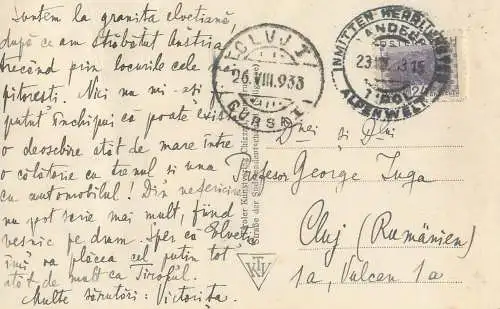 Suntem la granița elvețiană,
după ce am străbătut Austria
trecând prin locurile cele mai
pitorești. Nici nu mi-ași fi
putut închipui că poate exista
o deosebire atât de mare între
o călătorie cu trenul și una
cu automobilul! Din nefericire
nu pot scrie mai mult, fiind
veșnic pe drum. Sper că Elveția
îmi va plăcea cel puțin tot
atât de mult ca Tirolul.
Multe sărutări: Victorița
CLUJ 1
26.VIII.933
CURSA 1
INMITTEN HERRLICHER
LANDECK
TIROL
ALPENWELT
24
Dnei și Dlui
Profesor George Iuga
Cluj (Rumänien)
1a, Vulcan 1a